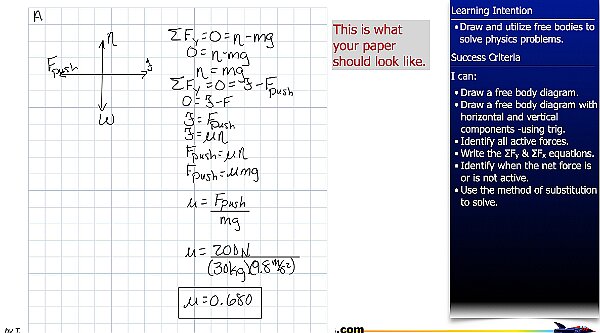 A
n
F push
ℑ
W
ΣFy=0=n-mg
0=n-mg
n=mg
ΣFy=0=ℑ-Fpush
0=ℑ-F
ℑ=Fpush
ℑ=μn
Fpush=μn
Fpush=μmg
μ=Fpush
mg
μ=200N
(30kg)(9.8m/s²)
μ=0.680
This is what
your paper
should look like.
Learning Intention
• Draw and utilize free bodies to
solve physics problems.
Success Criteria
I can:
• Draw a free body diagram.
• Draw a free body diagram with
horizontal and vertical
components -using trig.
• Identify all active forces.
• Write the ΣFy & ΣFx equations.
• Identify when the net force is
or is not active.
• Use the method of substitution
to solve.
.com